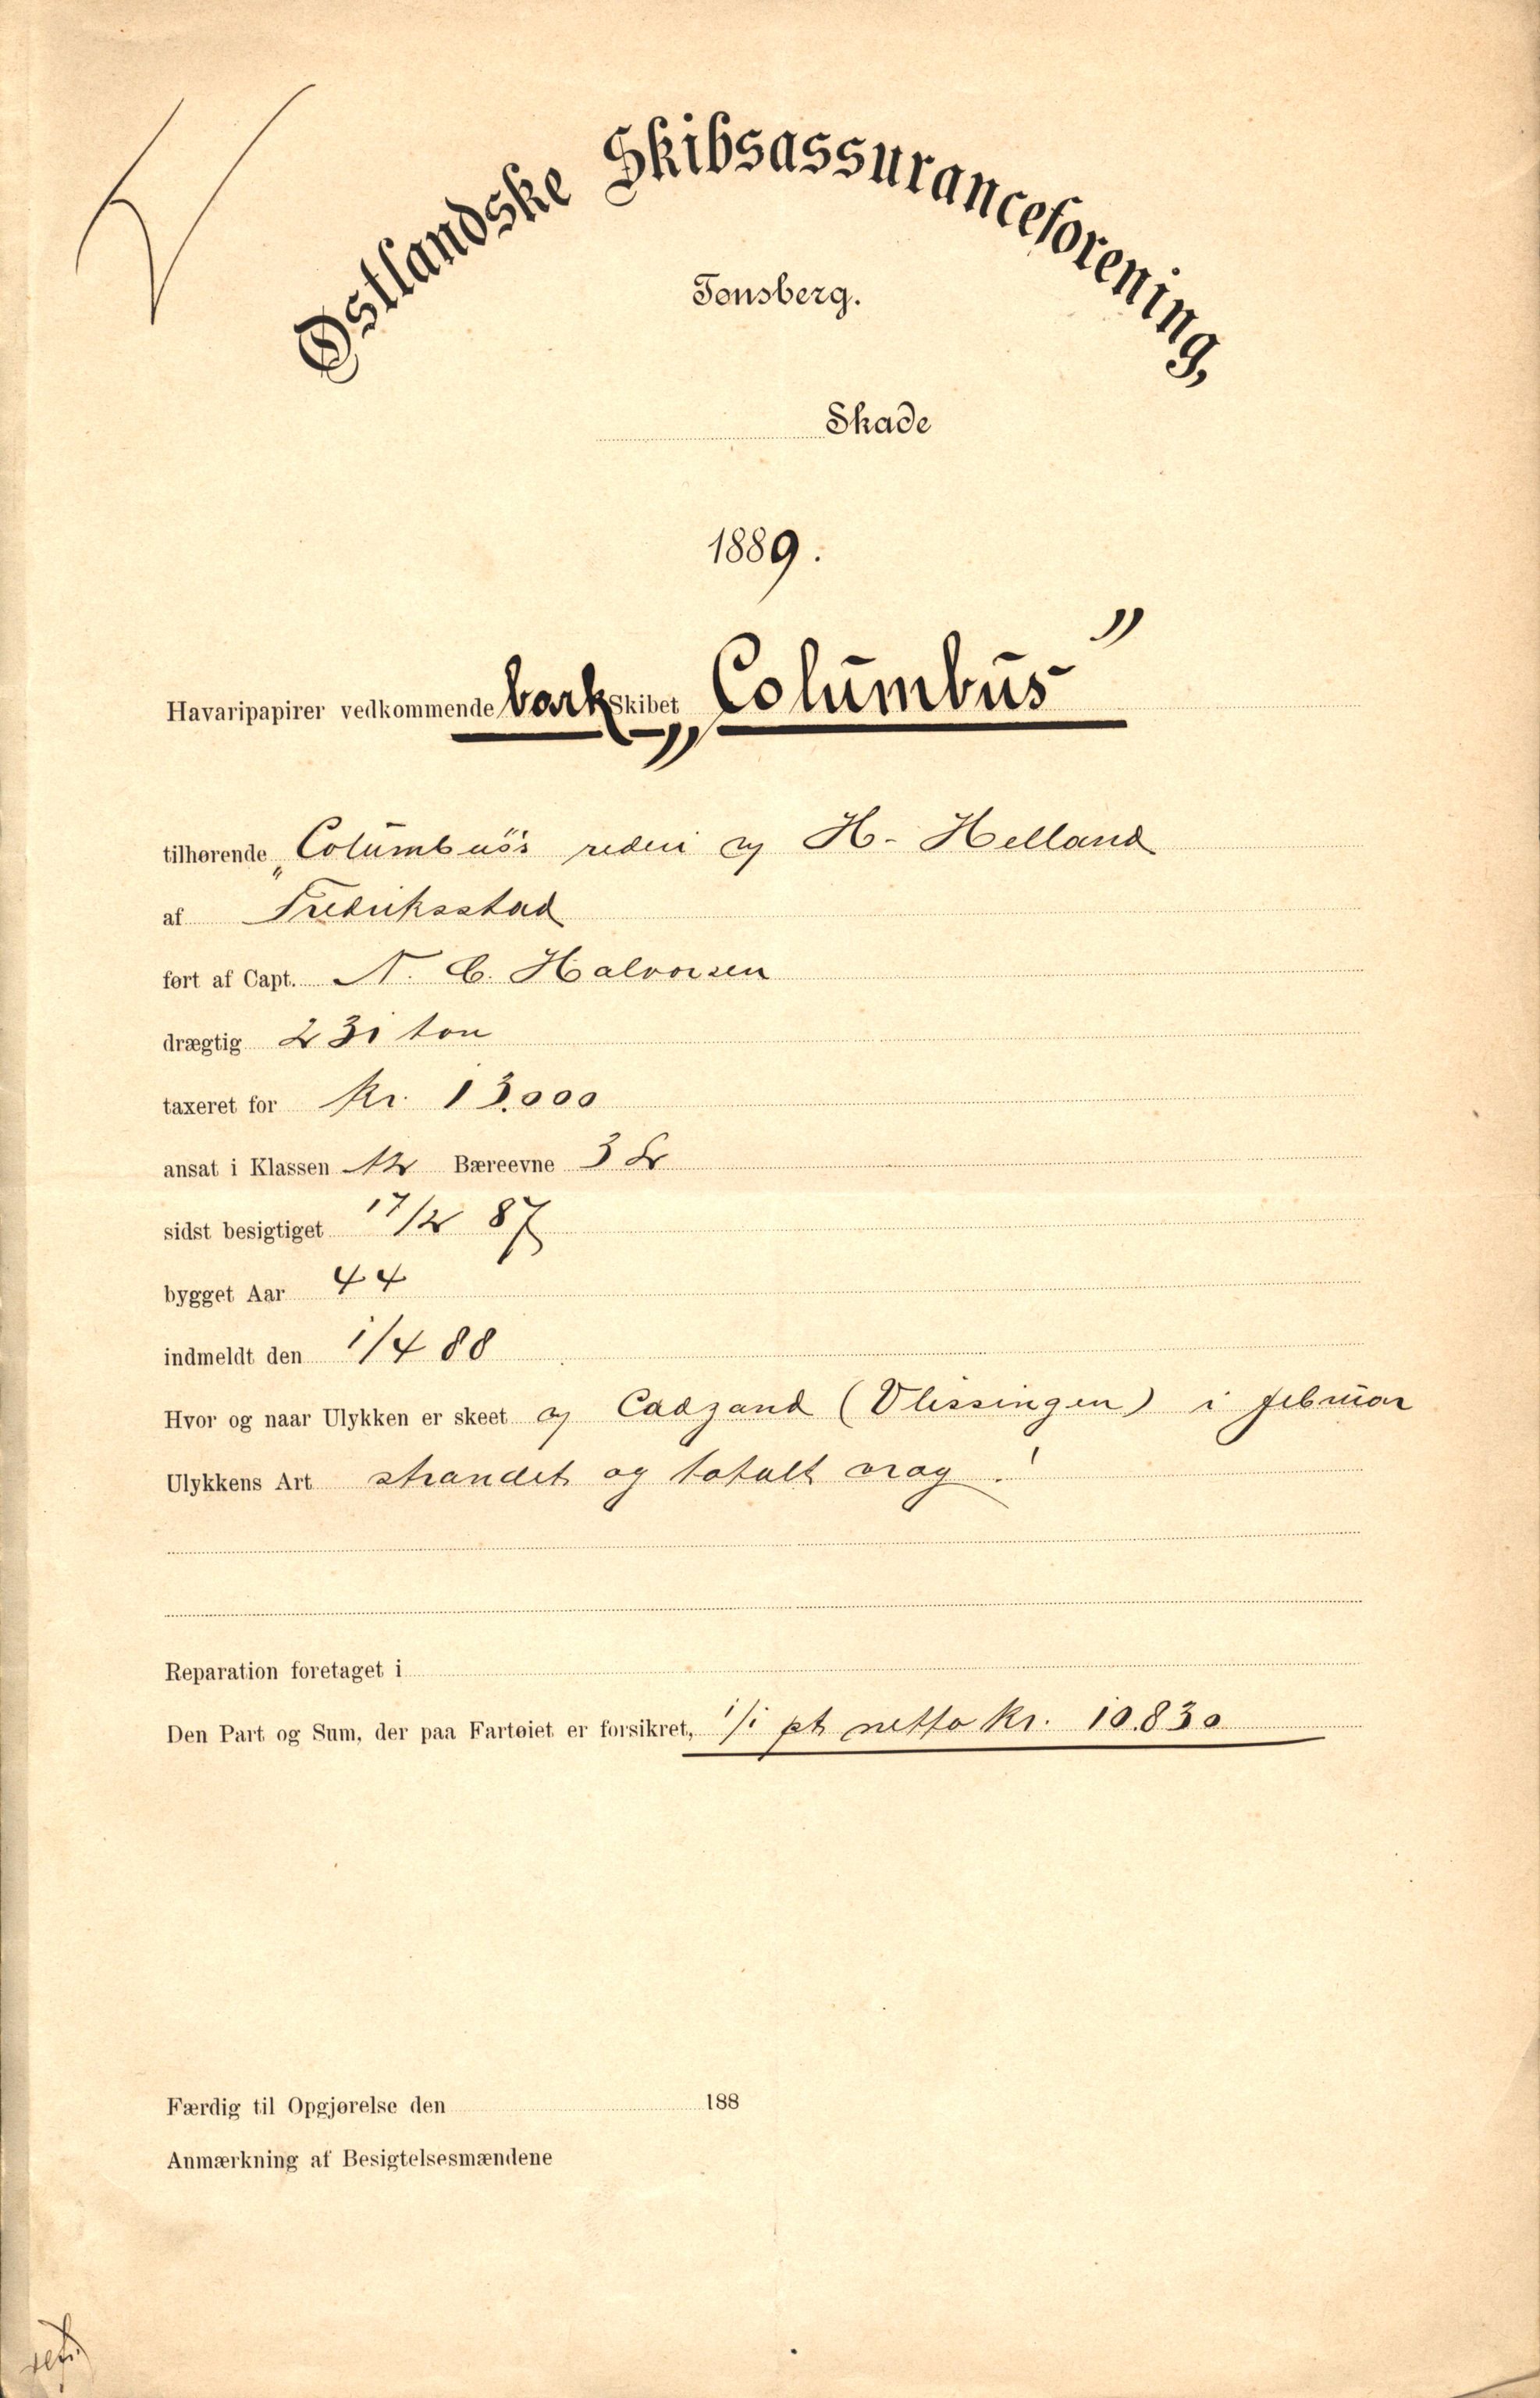 Østlandske Skibsassuranceforening,
Tønsberg.
Skade
1889.
Havaripapirer vedkommende bark Skibet „Columbus"
tilhørende „Columbus's rederi og H. Helland
af Fredriksstad
ført af Capt. N. C. Halvorsen
drægtig 231 ton
taxeret for Kr. 13.000
ansat i Klassen Bæreevne 3
sidst besigtiget 17/2 87
bygget Aar 44
indmeldt den 1/4 88
Hvor og naar Ulykken er skeet Cadzand (Vlissingen) i februar
Ulykkens Art strandet og totalt vrag!
Reparation foretaget i
Den Part og Sum, der paa Fartøiet er forsikret, 1/1 pt netto Kr. 10.830
Færdig til Opgjørelse den 188
Anmærkning af Besigtelsesmændene